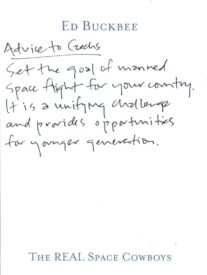 ED BUCKBEE
Advice to Czechs
Set the goal of manned
space flight for your country.
It is a unifying challenge
and provides opportunities
for younger generation.
THE REAL SPACE COWBOYS